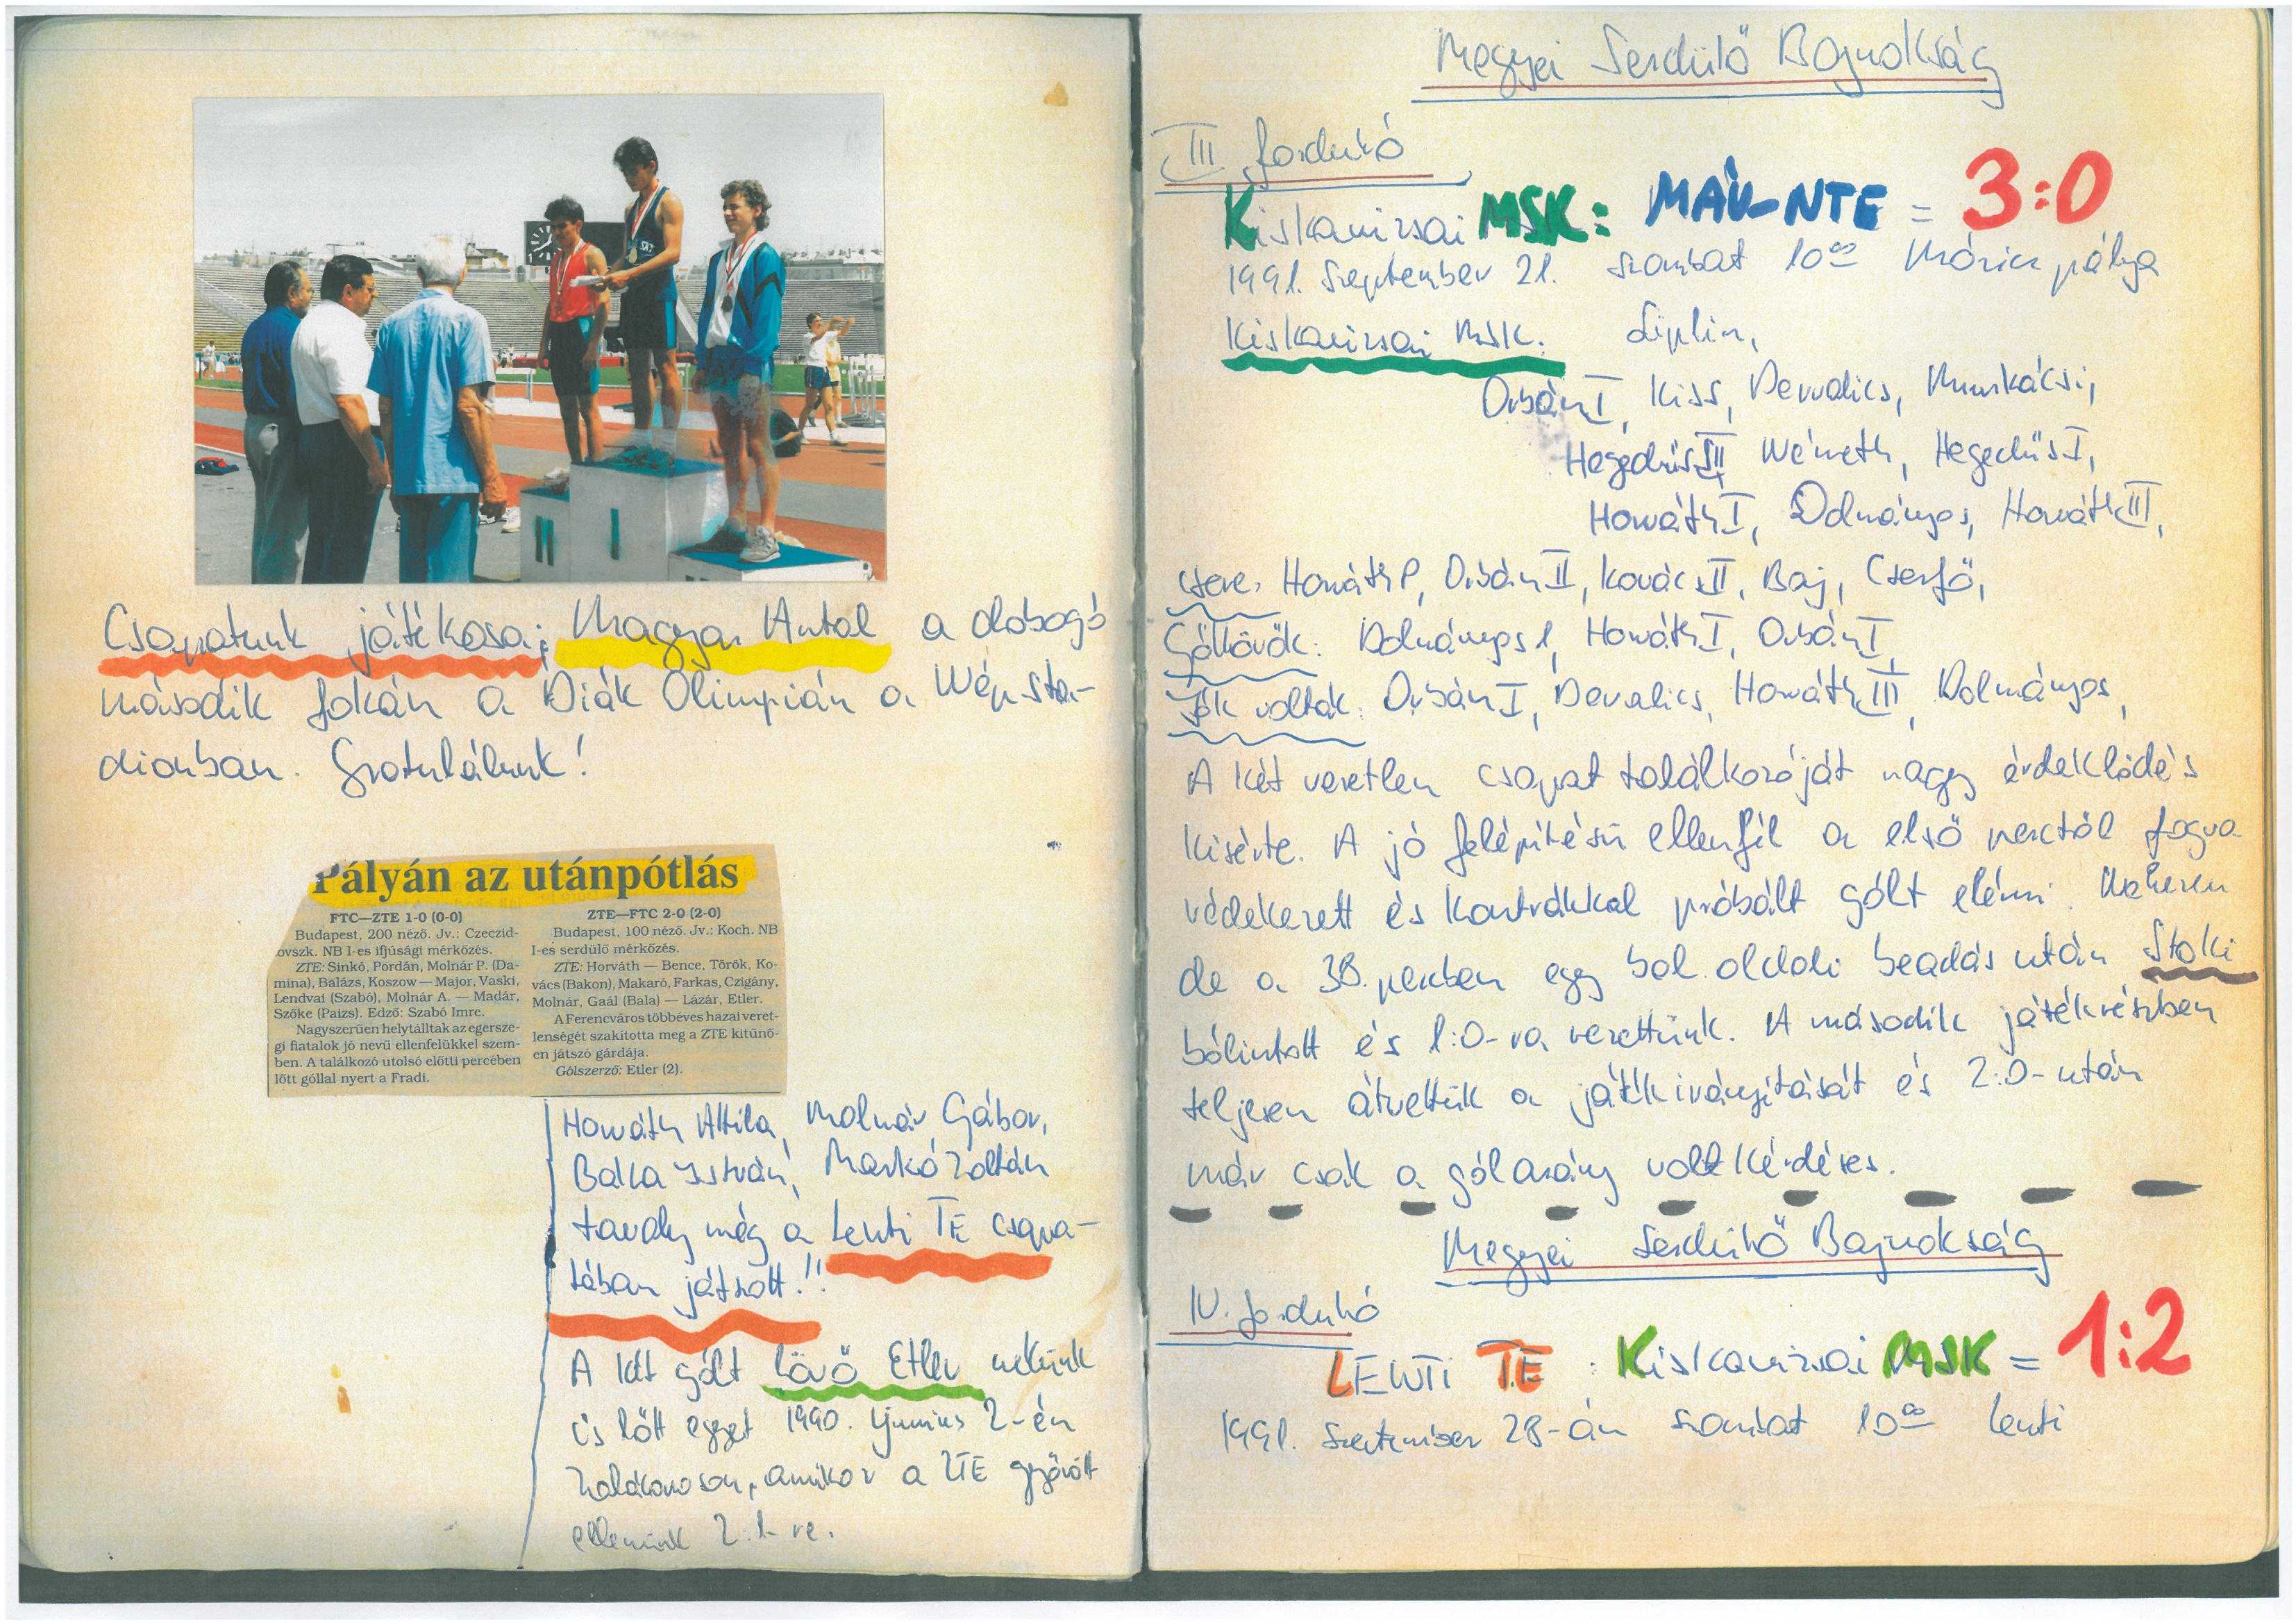 Csapatunk játékosa; Magyar Antal a dobogó
második fokán a Diák Olimpián a Népsta-
dionban. Gratulálunk!
Pályán az utánpótlás
FTC—ZTE 1-0 (0-0)
Budapest, 200 néző. Jv.: Czeczid-
ovszk. NB I-es ifjúsági mérkőzés.
ZTE: Sinkó, Pordán, Molnár P. (Da-
mina), Balázs, Koszow — Major, Vaski,
Lendvai (Szabó), Molnár A. — Madár,
Szőke (Paizs). Edző: Szabó Imre.
Nagyszerűen helytálltak az egersze-
gi fiatalok jó nevű ellenfelükkel szem-
ben. A találkozó utolsó előtti percében
lőtt góllal nyert a Fradi.
ZTE—FTC 2-0 (2-0)
Budapest, 100 néző. Jv.: Koch. NB
I-es serdülő mérkőzés.
ZTE: Horváth — Bence, Török, Ko-
vács (Bakon), Makaró, Farkas, Czigány,
Molnár, Gaál (Bala) — Lázár, Etler.
A Ferencváros többéves hazai veret-
lenségét szakította meg a ZTE kitűnő-
en játszó gárdája.
Gólszerző: Etler (2).
Horváth Attila, Molnár Gábor,
István, Markó Zoltán
tavaly még a Lenti TE csapa-
tában játszott!!
A két gólt lövő Etler nekünk
is lőtt egyet 1990. június 2-én
Zalakomáron, amikor a ZTE győzött
ellenünk 2:1-re.
Megyei Serdülő Bajnokság
III. forduló
Kiskanizsai MSK: MÁV-NTE = 3:0
1991. szeptember 21. szombat 10⁰⁰ Móricz pálya
Kiskanizsai MSK: Liplin,
Orbán I, Kiss, Dervalics, Munkácsi,
Hegedüs II, Németh, Hegedüs I,
Horváth I, Dolmányos, Horváth III,
csere: Horváth P, Orbán II, Kovács II, Baj, Cserfő,
Góllövők: Dolmányos 1, Horváth I, Orbán I,
Jók voltak: Orbán I, Dervalics, Horváth III, Dolmányos,
A két veretlen csapat találkozóját nagy érdeklődés
kisérte. A jó felépítésű ellenfél a első perctől fogva
védekezett és kontrákkal próbált gólt elérni. Nehezen
de a 38. percben egy bal oldali beadás után Stoki
bólintott és 1:0-ra vezettünk. A második játékrészben
teljesen átvettük a játék irányítását és 2:0-után
már csak a gólarány volt kérdéses.
Megyei Serdülő Bajnokság
IV. forduló
LENTI TE : Kiskanizsai MSK = 1:2
1991. szeptember 28-án szombat 10⁰⁰ Lenti